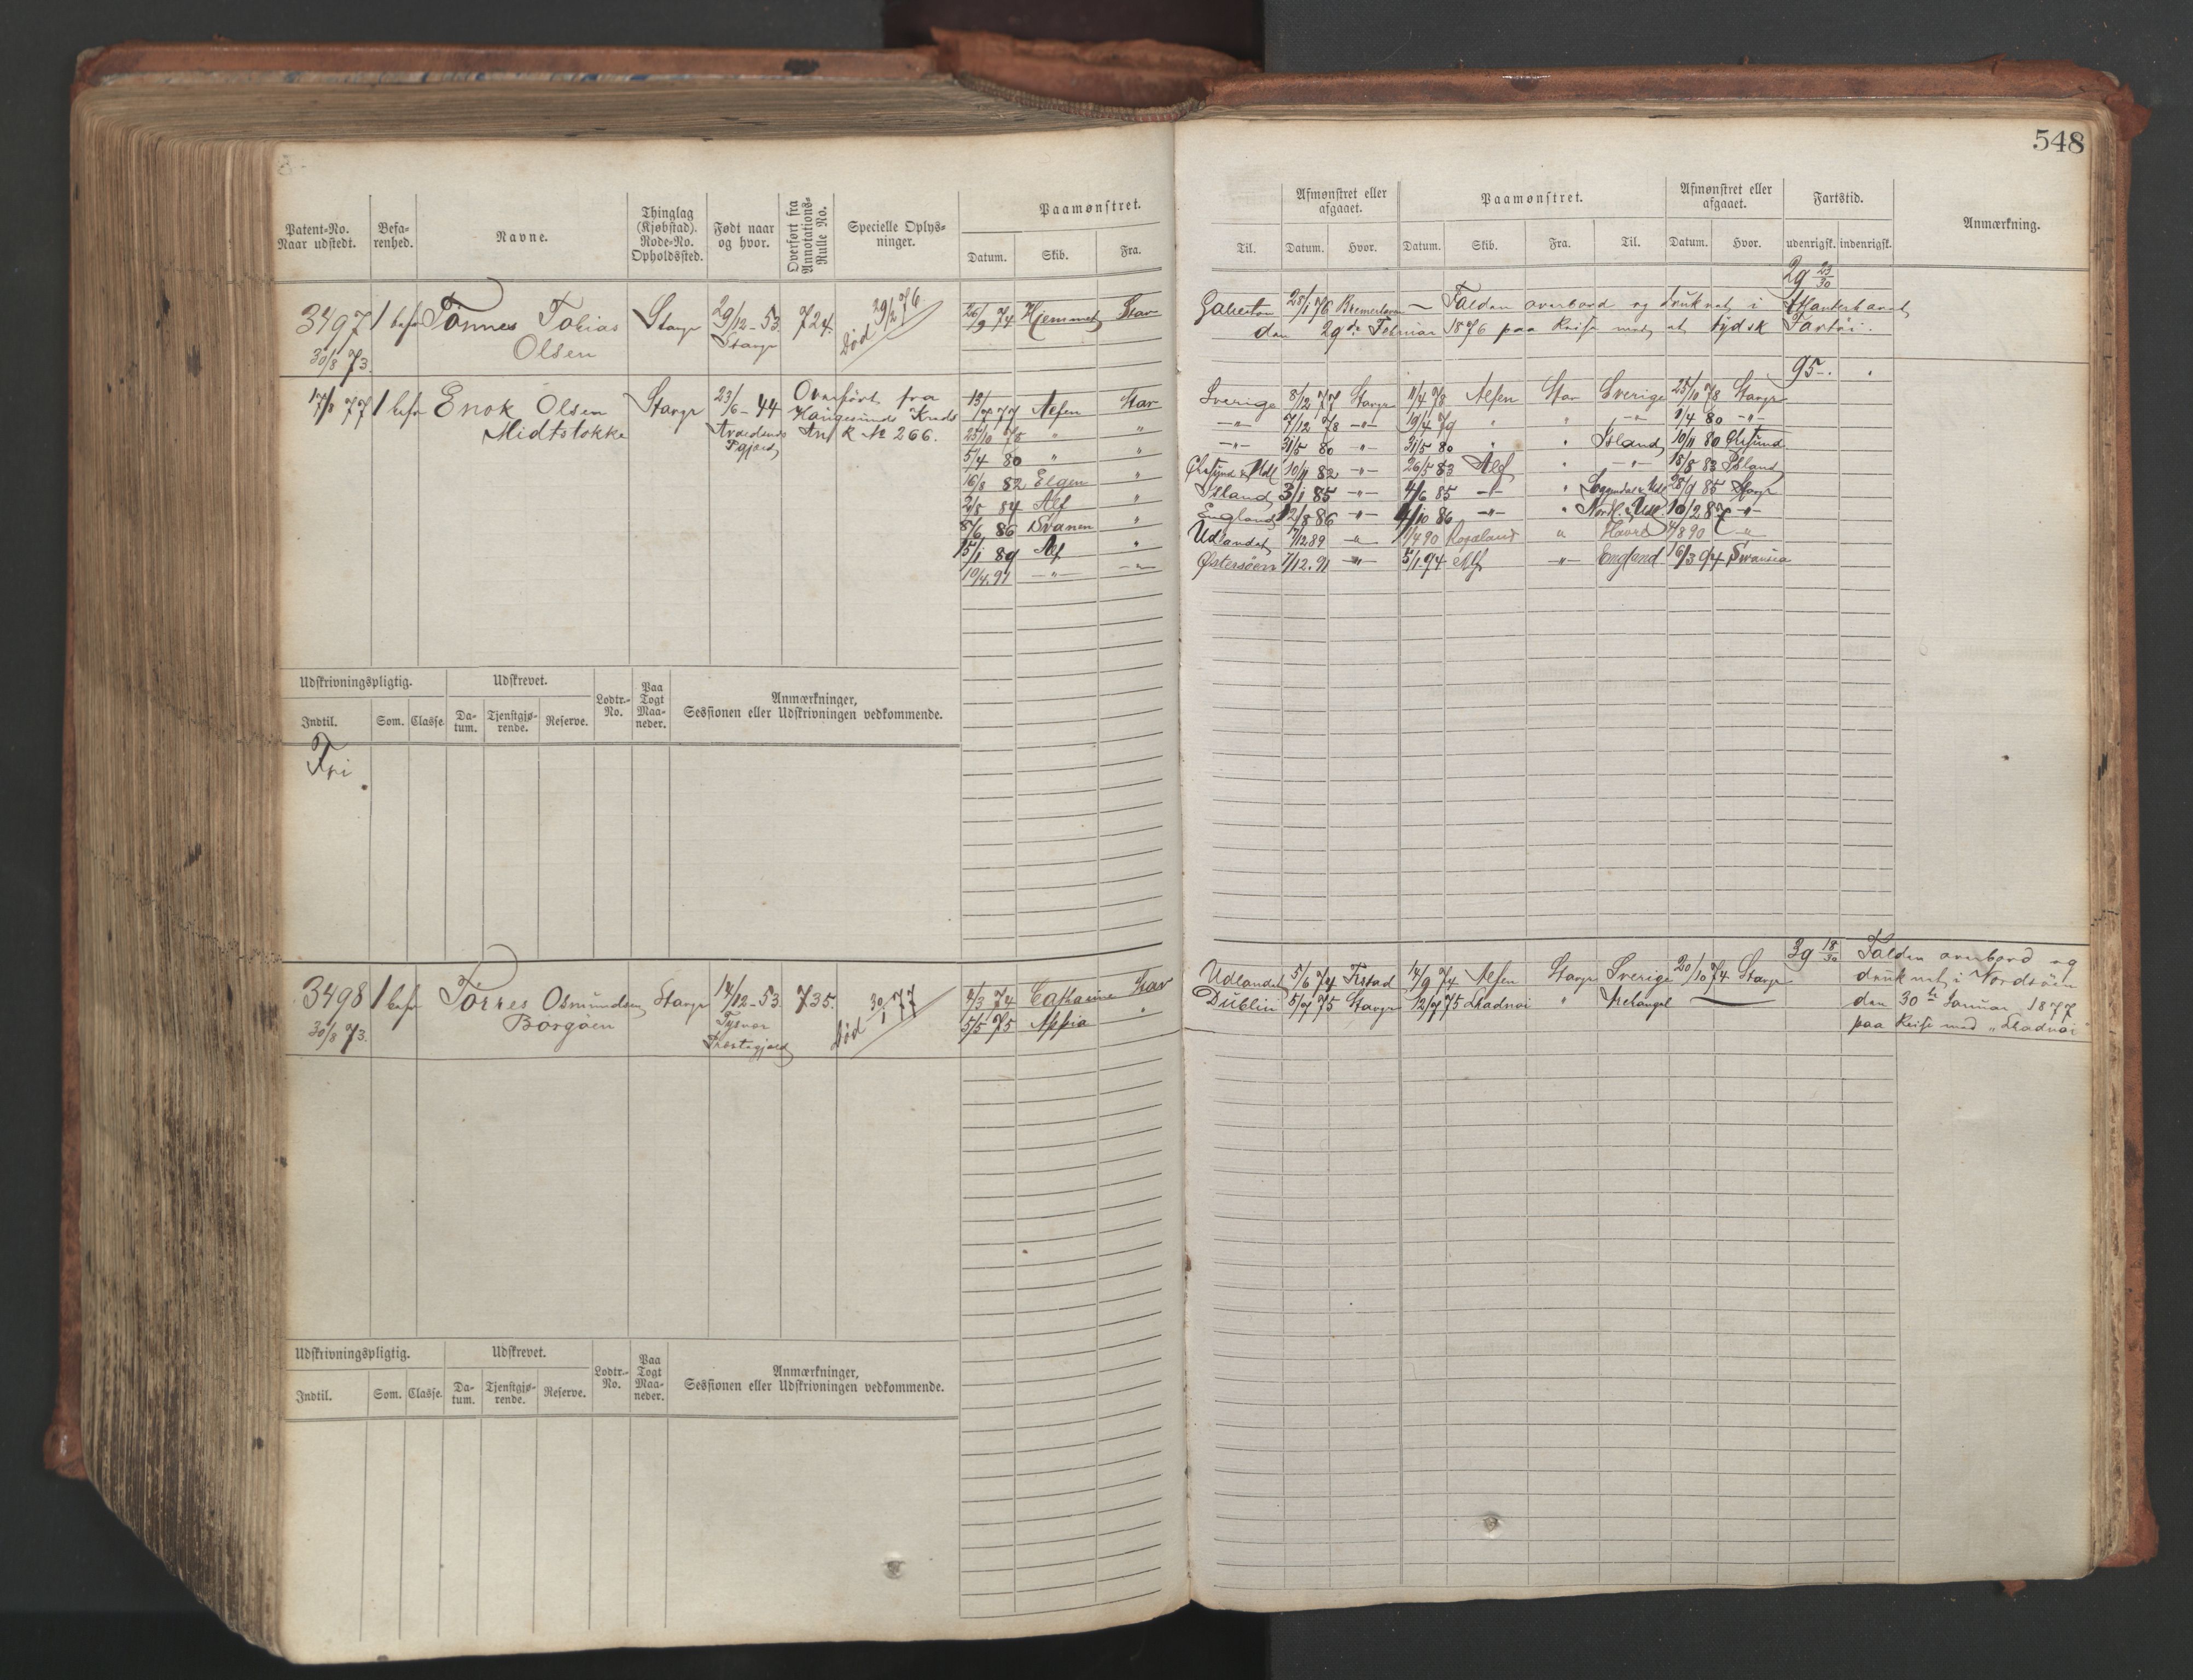 548
Patent-No. Naar udstedt.
Befa-renhed.
Navne.
Thinglag (Kjøbstad). Rode-No. Opholdssted.
Født naar og hvor.
Overført fra Annotations-Rulle No.
Specielle Oplys-ninger.
Paamønstret.
Datum. Skib. Fra.
Til.
Afmønstret eller afgaaet.
Datum. Hvor.
Paamønstret.
Datum. Skib. Fra. Til.
Afmønstret eller afgaaet.
Datum. Hvor.
Fartstid.
udenrigsk. indenrigsk.
Anmærkning.
29 23/30
3497 1 befa Tønnes Tobias Stavgr 29/12-53 724. Død 29/2 76. 26/9 74 Hjemmet Stav
Olsen Stavgr
30/8 73.
Bremerhaven — Falden overbord og druknet i Atlanterhavet
den 29de Februar 1876 paa Reise med et tydsk Fartöi.
95-.
17/8 77 1 befa Enok Olsen Stavgr 23/6-44 Overført fra Alfen Stav
Midtstokke Haugesunds Kreds
An R № 266.
Sverige 8/12 77 Stavgr 11/4 78 Alfen Stav Sverige 25/10 78 Stavgr
25/10 78 " "
-"- 7/12 78 -"- 19/4 79 " " -"- 1/4 80 -"-
5/4 80 " "
-"- 31/5 80 -"- 31/5 80 " " Island 10/11 80
16/8 82 Elgen "
10/11 82 -"- 26/5 83 Alf " -"- 15/8 83 Island
2/5 84 Alf "
Island 3/1 85 -"- 4/6 85 -"- " 28/9 85 Stavgr
8/6 86 Svanen "
England 12/8 86 -"- 4/10 86 -"- " Nordl. & Udl. 10/2 87 -"-
15/1 89 Alf "
Udlandet 7/12 89 -"- 1/4 90 Rogaland " Havre 4/8 90 -"-
10/4. 91 -"- -"-
Østersøen 7/12. 91 -"- 5/1. 94 Alf -"- England 16/3 94 Swansea
Udskrivningspligtig.
Udskrevet.
Lodtr.-No.
Paa Togt Maa-neder.
Anmærkninger,
Sessionen eller Udskrivningen vedkommende.
Indtil. Som. Classe. Da-tum. Tjenstgjø-rende. Reserve.
Fri
39 18/30
3498 1 befa Törres Osmundsen Stavgr 14/12-53. 735. Død 30/1 77 2/3 74 Catharine Stav
Borgöen Tysvær 5/5 75 Appia "
30/8 73.
Udlandet 5/6 74 14/9 74 Alfen Stavgr Sverige 20/10 74 Stavgr
Dublin 5/7 75 Stavgr 12/7 75 Ladnai " Arkangel —
Falden overbord og
druknet i Nordsöen
den 30te Januar 1877
paa Reise med „Ladnai"
Udskrivningspligtig.
Udskrevet.
Lodtr.-No.
Paa Togt Maa-neder.
Anmærkninger,
Sessionen eller Udskrivningen vedkommende.
Indtil. Som. Classe. Da-tum. Tjenstgjø-rende. Reserve.